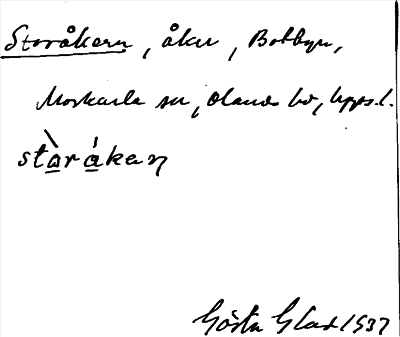 Storåkern, åker, Bobbyn,
Morkarla sn, Olands hd, Upps. l.
stàrákaɳ
Gösta Glad 1937